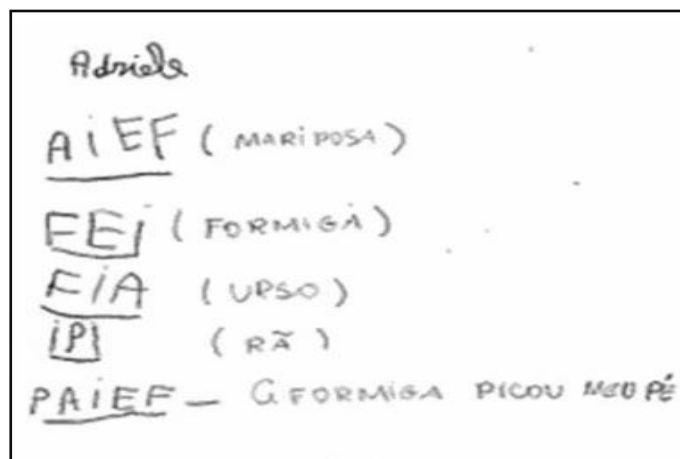 Adriele
AiEF (MARiPOSA)
FEi (FORMiGA)
FiA (UPSO)
iPi (RÃ)
PAiEF - A FORMiGA PICOU MEU PÉ